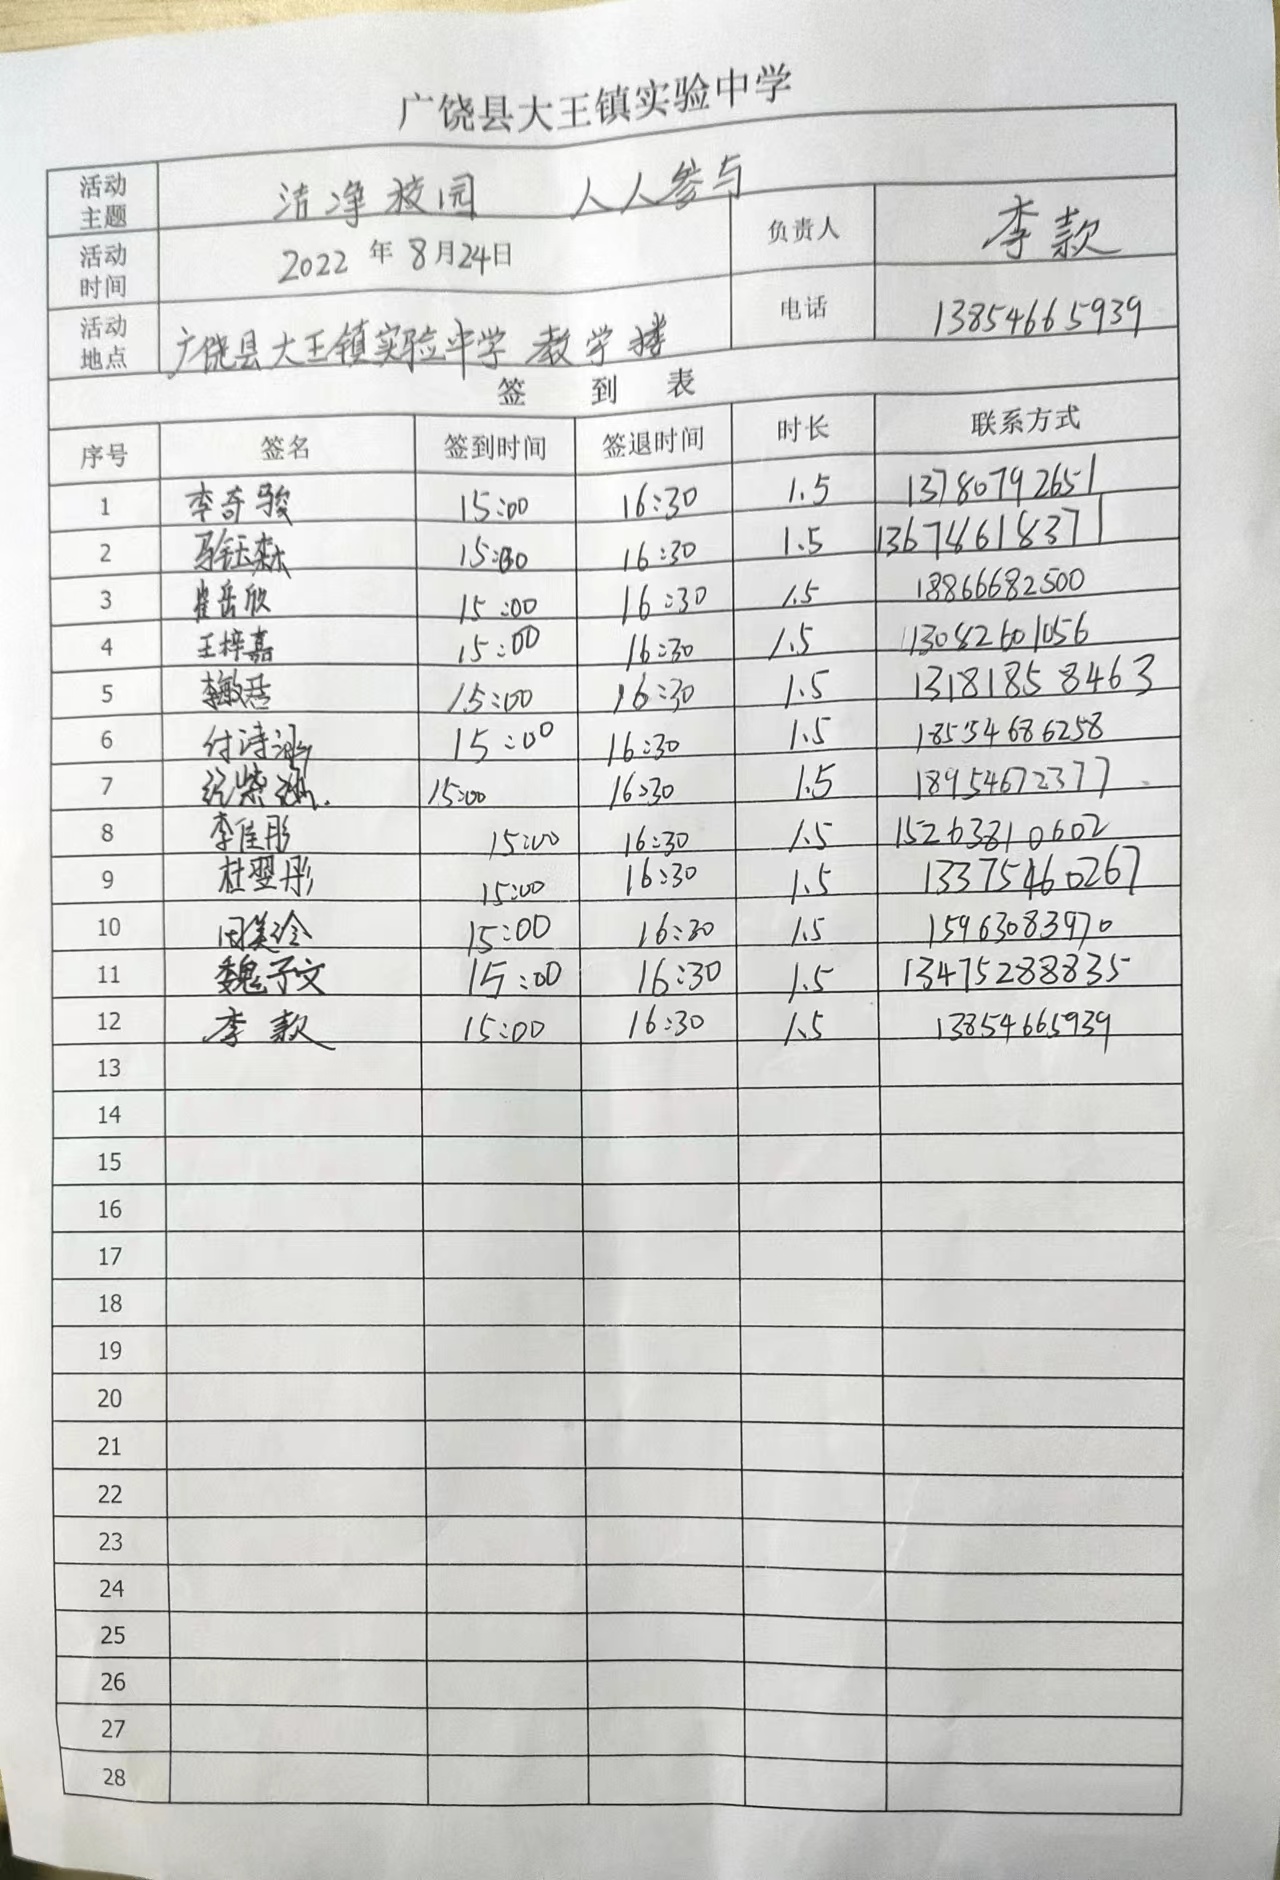 广饶县大王镇实验中学
活动主题 洁净校园 人人参与
活动时间 2022年8月24日 负责人 李款
活动地点 广饶县大王镇实验中学 教学楼 电话 13854665939
签到表
序号 签名 签到时间 签退时间 时长 联系方式
1 李奇骏 15:00 16:30 1.5 13780792651
2 马钰森 15:00 16:30 1.5 13674661837
3 崔岳欣 15:00 16:30 1.5 18866682500
4 王梓嘉 15:00 16:30 1.5 13082601056
5 李敏君 15:00 16:30 1.5 13181858463
6 付诗涵 15:00 16:30 1.5 18554686258
7 紫涵 15:00 16:30 1.5 18954672377
8 李佳彤 15:00 16:30 1.5 15263810602
9 杜翌彤 15:00 16:30 1.5 13375460267
10 15:00 16:30 1.5 15963083970
11 魏子文 15:00 16:30 1.5 13475288835
12 李款 15:00 16:30 1.5 13854665939
13
14
15
16
17
18
19
20
21
22
23
24
25
26
27
28